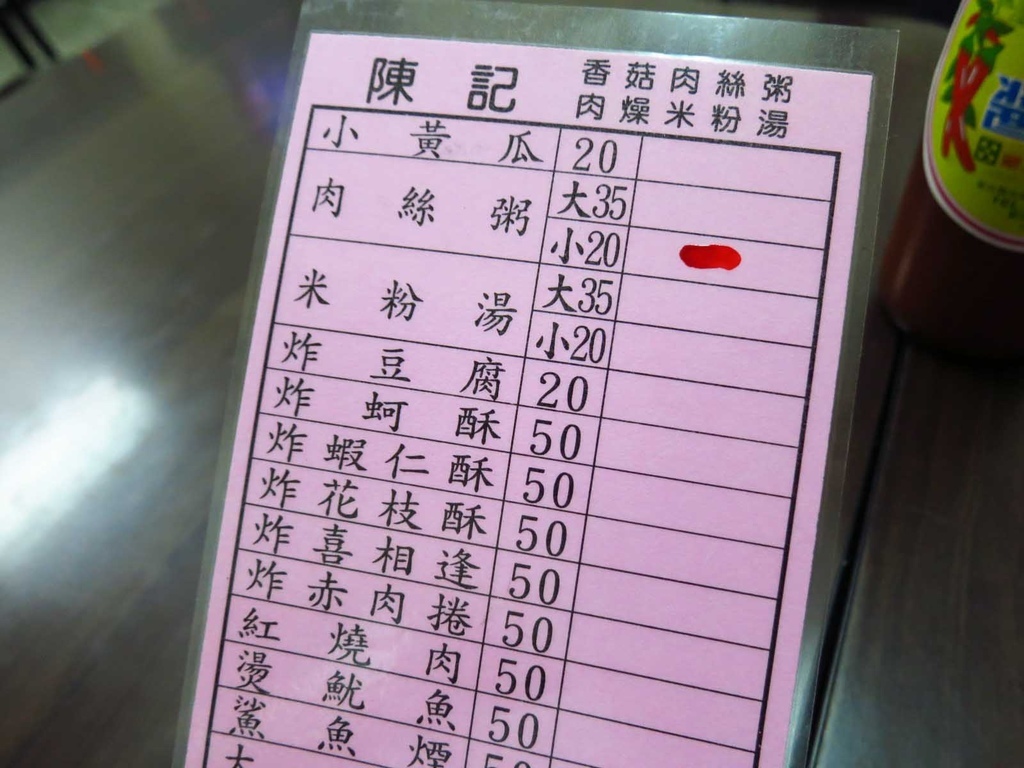 陳記 香菇肉絲粥
肉燥米粉湯
小黃瓜 20
肉絲粥 大35
小20
米粉湯 大35
小20
炸豆腐 20
炸蚵酥 50
炸蝦仁酥 50
炸花枝酥 50
炸喜相逢 50
炸赤肉捲 50
紅燒肉 50
燙魷魚 50
鯊魚煙 50